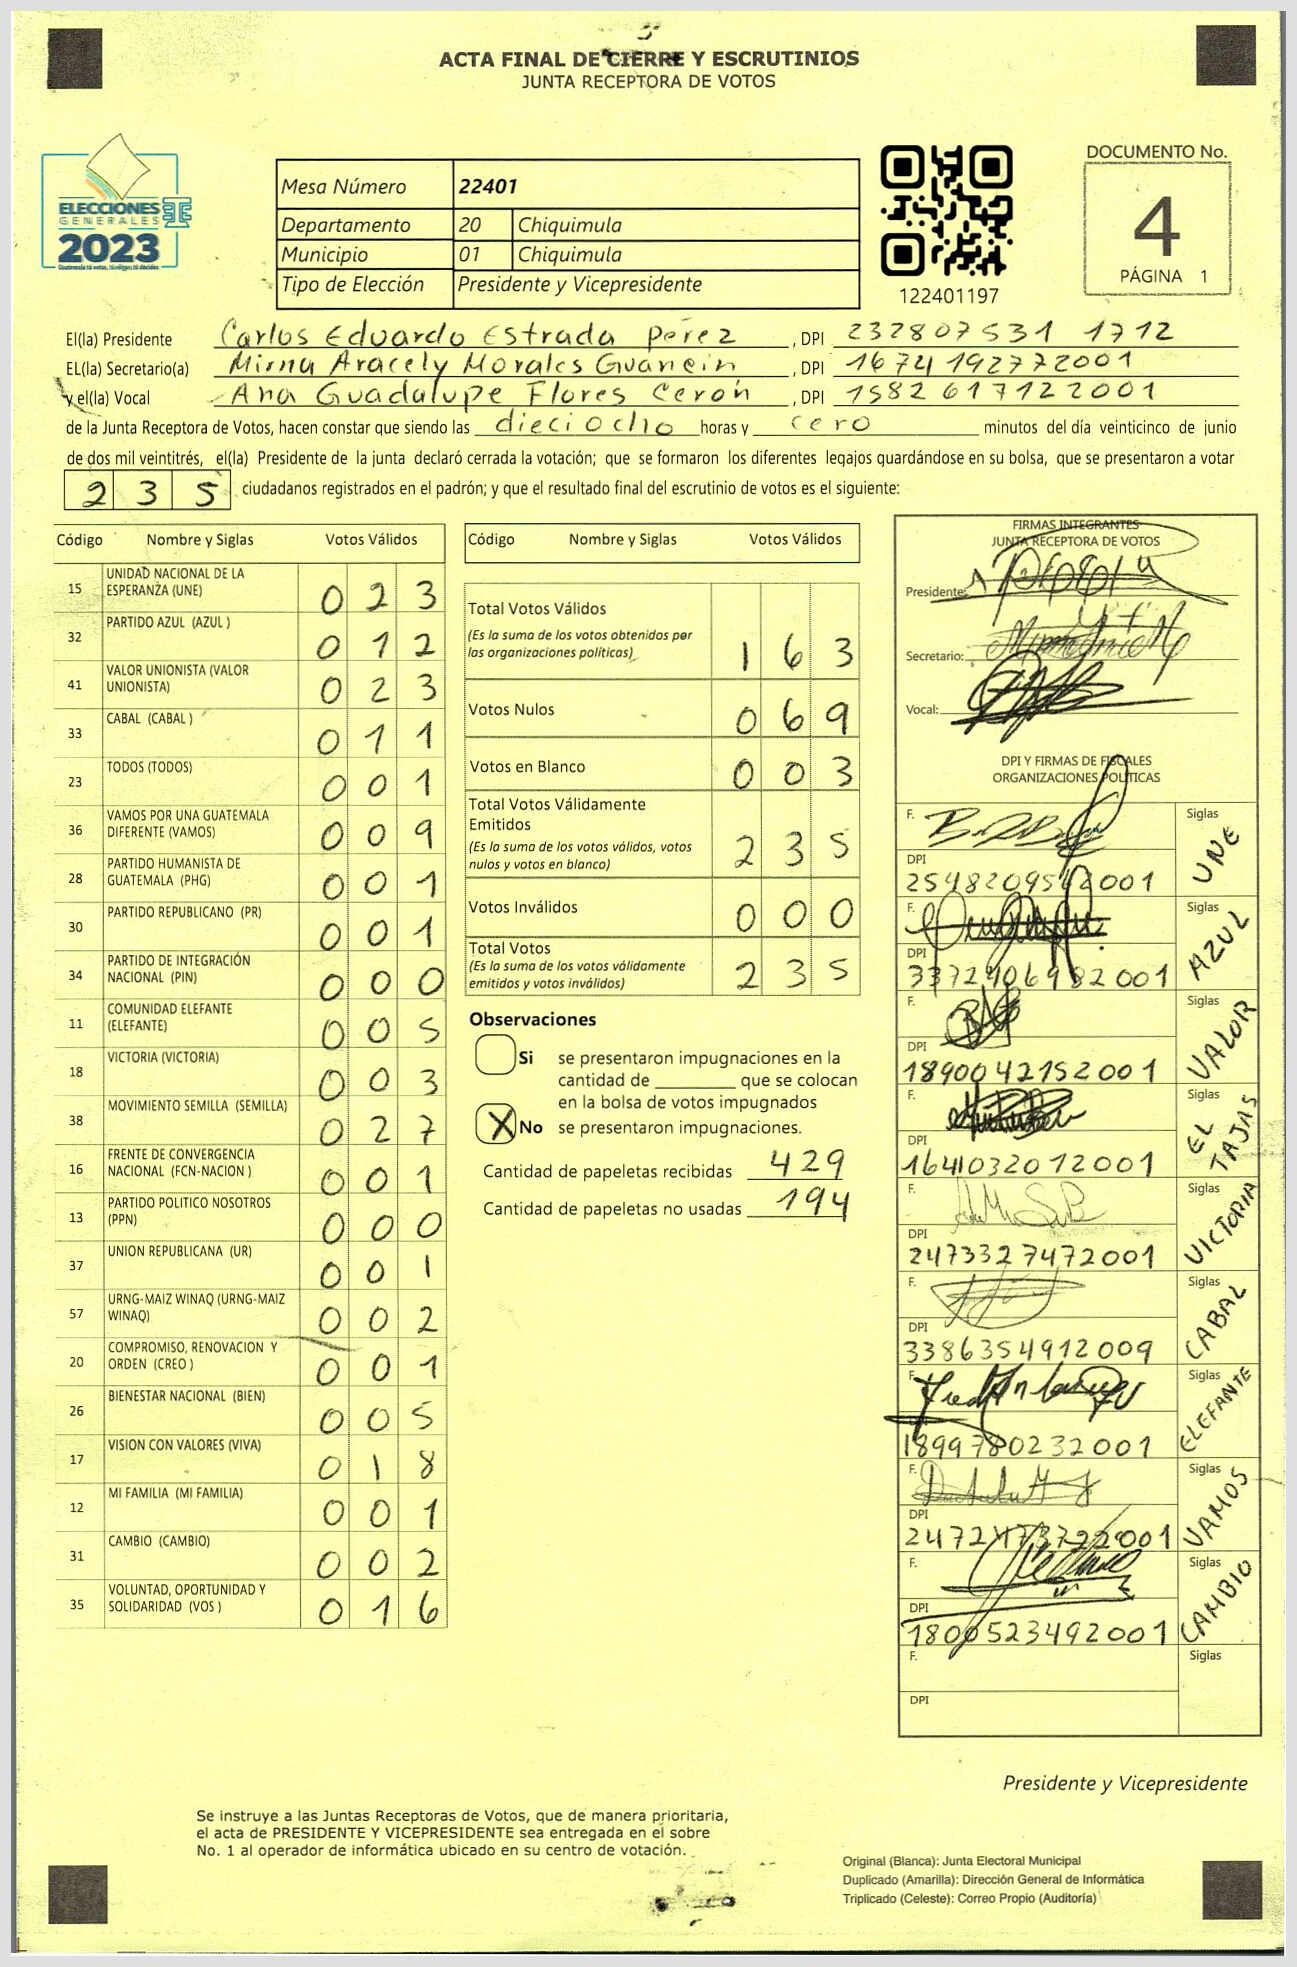 ACTA FINAL DE CIERRE Y ESCRUTINIOS
JUNTA RECEPTORA DE VOTOS
ELECCIONES
GENERALES
2023
Mesa Número 22401
Departamento 20 Chiquimula
Municipio 01 Chiquimula
Tipo de Elección Presidente y Vicepresidente
122401197
DOCUMENTO No.
4
PÁGINA 1
El(la) Presidente Carlos Eduardo Estrada Pérez , DPI 232807531 1712
EL(la) Secretario(a) Mirna Aracely Morales , DPI 1674192772001
y el(la) Vocal Ana Guadalupe Flores Cerón , DPI 1582617122001
de la Junta Receptora de Votos, hacen constar que siendo las dieciocho horas y cero minutos del día veinticinco de junio
de dos mil veintitrés, el(la) Presidente de la junta declaró cerrada la votación; que se formaron los diferentes legajos guardándose en su bolsa, que se presentaron a votar
235 ciudadanos registrados en el padrón; y que el resultado final del escrutinio de votos es el siguiente:
Código Nombre y Siglas Votos Válidos
15 UNIDAD NACIONAL DE LA ESPERANZA (UNE) 023
32 PARTIDO AZUL (AZUL ) 012
41 VALOR UNIONISTA (VALOR UNIONISTA) 023
33 CABAL (CABAL ) 011
23 TODOS (TODOS) 001
36 VAMOS POR UNA GUATEMALA DIFERENTE (VAMOS) 009
28 PARTIDO HUMANISTA DE GUATEMALA (PHG) 001
30 PARTIDO REPUBLICANO (PR) 001
34 PARTIDO DE INTEGRACIÓN NACIONAL (PIN) 000
11 COMUNIDAD ELEFANTE (ELEFANTE) 005
18 VICTORIA (VICTORIA) 003
38 MOVIMIENTO SEMILLA (SEMILLA) 027
16 FRENTE DE CONVERGENCIA NACIONAL (FCN-NACION ) 001
13 PARTIDO POLITICO NOSOTROS (PPN) 000
37 UNION REPUBLICANA (UR) 001
57 URNG-MAIZ WINAQ (URNG-MAIZ WINAQ) 002
20 COMPROMISO, RENOVACION Y ORDEN (CREO ) 001
26 BIENESTAR NACIONAL (BIEN) 005
17 VISION CON VALORES (VIVA) 018
12 MI FAMILIA (MI FAMILIA) 001
31 CAMBIO (CAMBIO) 002
35 VOLUNTAD, OPORTUNIDAD Y SOLIDARIDAD (VOS ) 016
Código Nombre y Siglas Votos Válidos
Total Votos Válidos 163
(Es la suma de los votos obtenidos por
las organizaciones políticas)
Votos Nulos 069
Votos en Blanco 003
Total Votos Válidamente
Emitidos 235
(Es la suma de los votos válidos, votos
nulos y votos en blanco)
Votos Inválidos 000
Total Votos 235
(Es la suma de los votos válidamente
emitidos y votos inválidos)
Observaciones
Si se presentaron impugnaciones en la
cantidad de ________ que se colocan
en la bolsa de votos impugnados
X No se presentaron impugnaciones.
Cantidad de papeletas recibidas 429
Cantidad de papeletas no usadas 194
FIRMAS INTEGRANTES
JUNTA RECEPTORA DE VOTOS
Presidente:
Secretario:
Vocal:
DPI Y FIRMAS DE FISCALES
ORGANIZACIONES POLÍTICAS
F. Siglas UNE
DPI
F. Siglas AZUL
DPI 3372406982001
F. Siglas VALOR
DPI 1890042152001
F. Siglas EL TAJAS
DPI 1641032012001
F. Siglas VICTORIA
DPI 2473327472001
F. Siglas CABAL
DPI 3386354912009
F. Siglas ELEFANTE
1899780232001
F. Siglas VAMOS
DPI
F. Siglas CAMBIO
DPI 1800523492001
F. Siglas
DPI
Presidente y Vicepresidente
Se instruye a las Juntas Receptoras de Votos, que de manera prioritaria,
el acta de PRESIDENTE Y VICEPRESIDENTE sea entregada en el sobre
No. 1 al operador de informática ubicado en su centro de votación.
Original (Blanca): Junta Electoral Municipal
Duplicado (Amarilla): Dirección General de Informática
Triplicado (Celeste): Correo Propio (Auditoría)